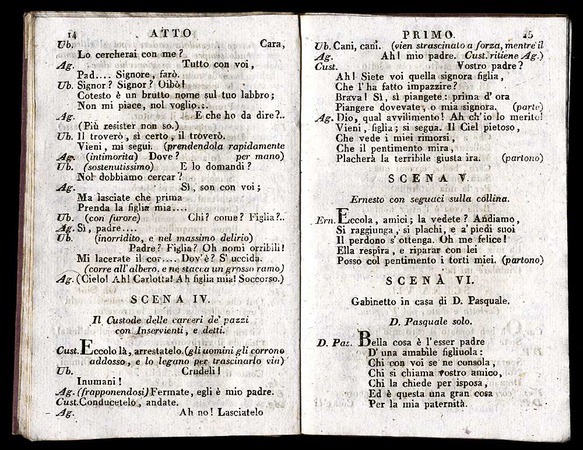 14 ATTO
Ub. Cara,
Lo cercherai con me?
Ag. Tutto con voi,
Pad.... Signore, farò.
Ub. Signor? Signor? Oibò!
Cotesto è un brutto nome sul tuo labbro;
Non mi piace, nol voglio..
Ag. E che ho da dire?..
(Più resister non so.)
Ub. Il troverò, sì certo, il troverò.
Vieni, mi segui. (prendendola rapidamente
Ag. (intimorita) Dove? per mano)
Ub. (sostenutissimo) E lo domandi?
Nol dobbiamo cercar?
Ag. Sì, son con voi;
Ma lasciate che prima
Prenda la figlia mia....
Ub. (con furore) Chi? come? Figlia?..
Ag. Sì, padre....
Ub. (inorridito, e nel massimo delirio)
Padre? Figlia? Oh nomi orribili!
Mi lacerate il cor.... Dov'è? S'uccida.
(corre all'albero, e ne stacca un grosso ramo)
Ag. (Cielo! Ah! Carlotta! Ah figlia mia! Soccorso.)
SCENA IV.
Il Custode delle carceri de' pazzi
con Inservienti, e detti.
Cust. Eccolo là, arrestatelo. (gli uomini gli corrono
addosso, e lo legano per trascinarlo via)
Ub. Crudeli!
Inumani!
Ag. (frapponendosi) Fermate, egli è mio padre.
Cust. Conducetelo, andate.
Ag. Ah no! Lasciatelo
PRIMO. 15
Ub. Cani, cani. (vien strascinato a forza, mentre il
Ag. Ah! mio padre. Cust. riliene Ag.)
Cust. Vostro padre?
Ah! Siete voi quella signora figlia,
Che l'ha fatto impazzire?
Brava! Sì, sì piangete: prima d'ora
Piangere dovevate, o mia signora. (parte)
Ag. Dio, qual avvilimento! Ah ch'io lo merito!
Vieni, figlia; si segua. Il Ciel pietoso,
Che vede i miei rimorsi,
Che il pentimento mira,
Placherà la terribile giusta ira. (partono)
SCENA V.
Ernesto con seguaci sulla collina.
Ern. Eccola, amici; la vedete? Andiamo,
Si raggiunga, si plachi, e a' piedi suoi
Il perdono s'ottenga. Oh me felice!
Ella respira, e riparar con lei
Posso col pentimento i torti miei. (partono)
SCENA VI.
Gabinetto in casa di D. Pasquale.
D. Pasquale solo.
D. Pas. Bella cosa è l'esser padre
D' una amabile figliuola:
Chi con voi se ne consola,
Chi si chiama vostro amico,
Chi la chiede per isposa,
Ed è questa una gran cosa
Per la mia paternità.